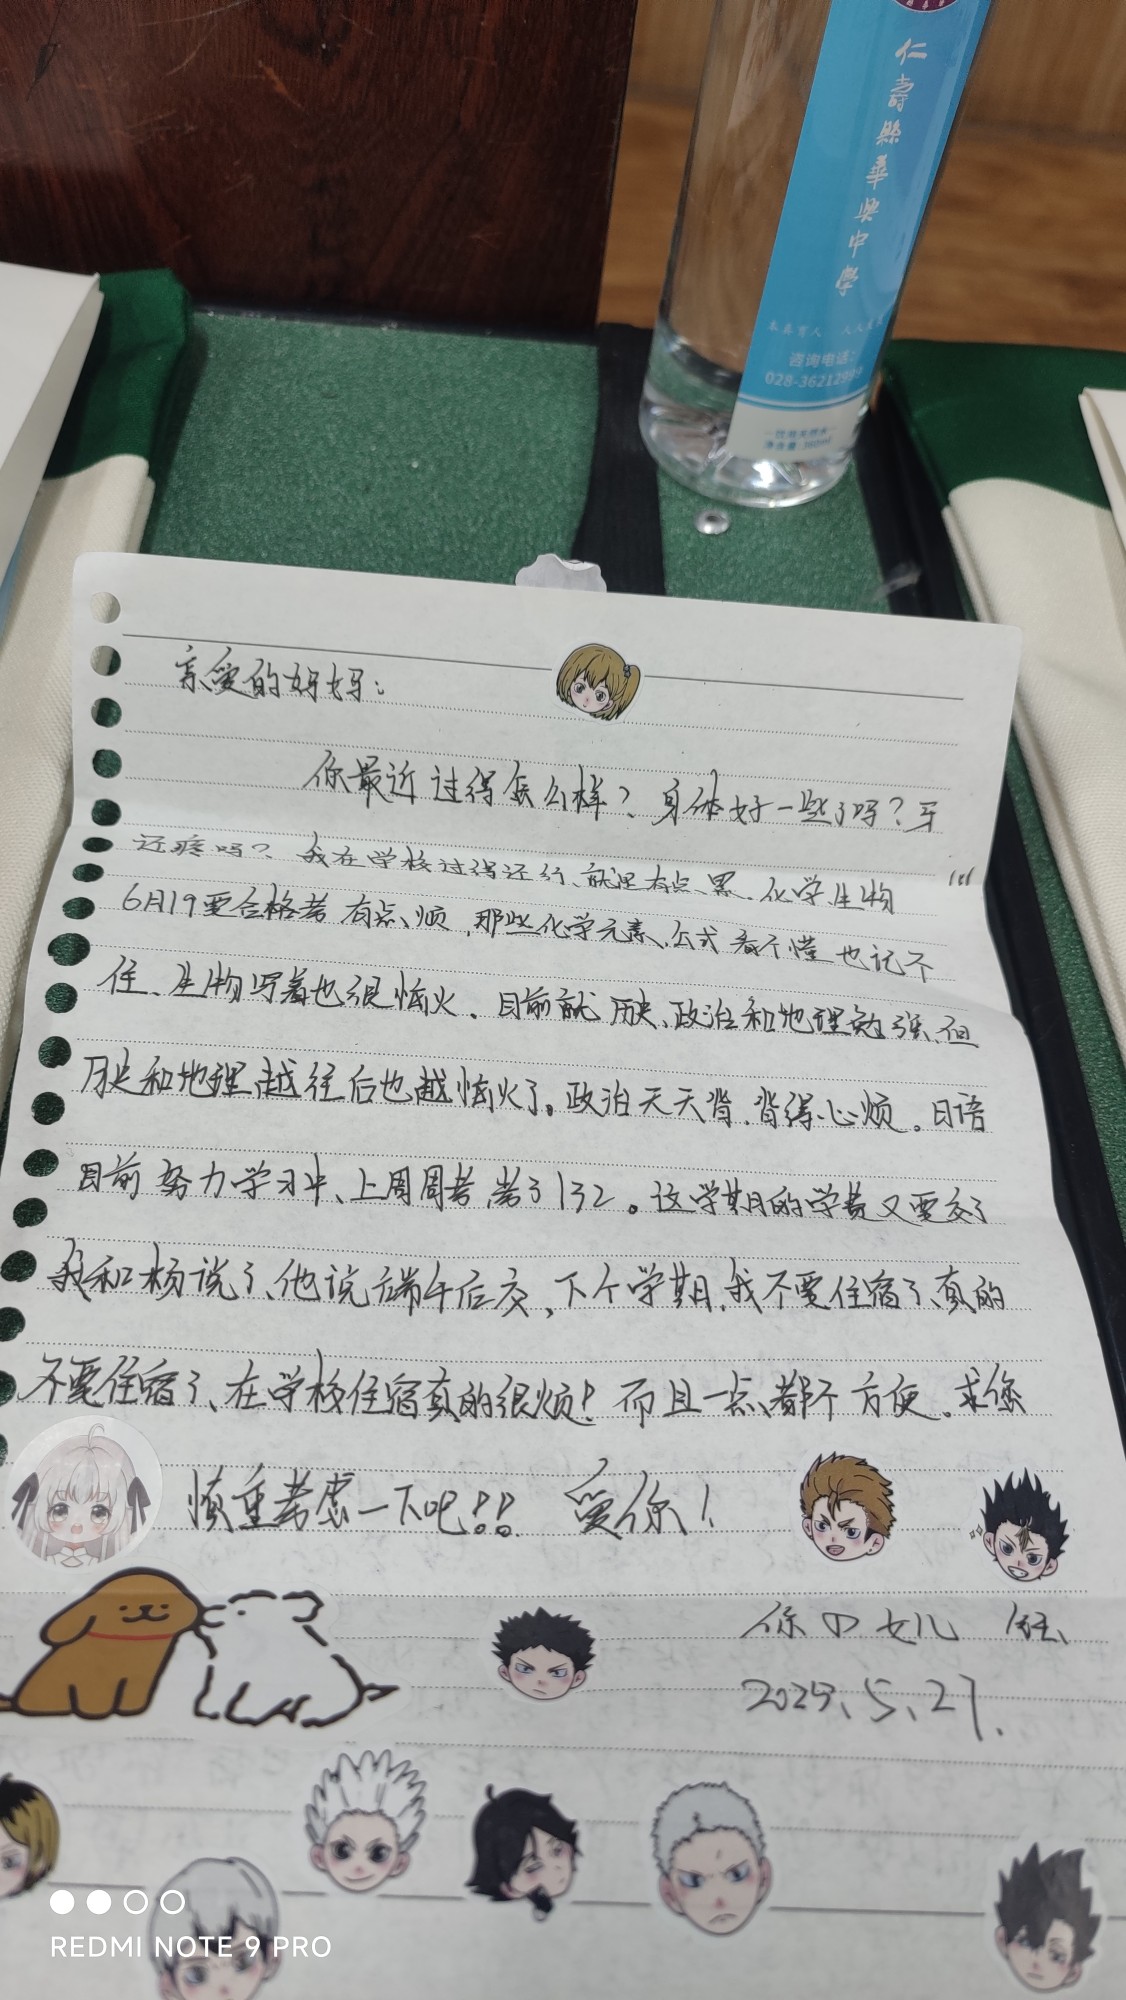 仁壽縣華興中學
咨询电话:
净含量:360ml
亲爱的妈妈:
你最近过得怎么样?身体好一些了吗?牙
还疼吗?我在学校过得还行、就是有点、累.化学生物
6月19要合格考 有点、烦,那些化学元素、公式 看不懂 也记不
住、生物写着也很恼火。目前就 历史、政治和地理勉强、但
历史和地理越往后也越恼火了。政治天天背,背得心烦。日语
目前努力学习中、上周周考,考了132。这学期的学费又要交了
我和杨说了、他说端午后交,下个学期,我不要住宿了、真的
不要住宿了、在学校住宿真的很烦!而且一点、都不方便。求您
慎重考虑一下吧!! 爱你!
你の女儿
5.27.
REDMI NOTE 9 PRO